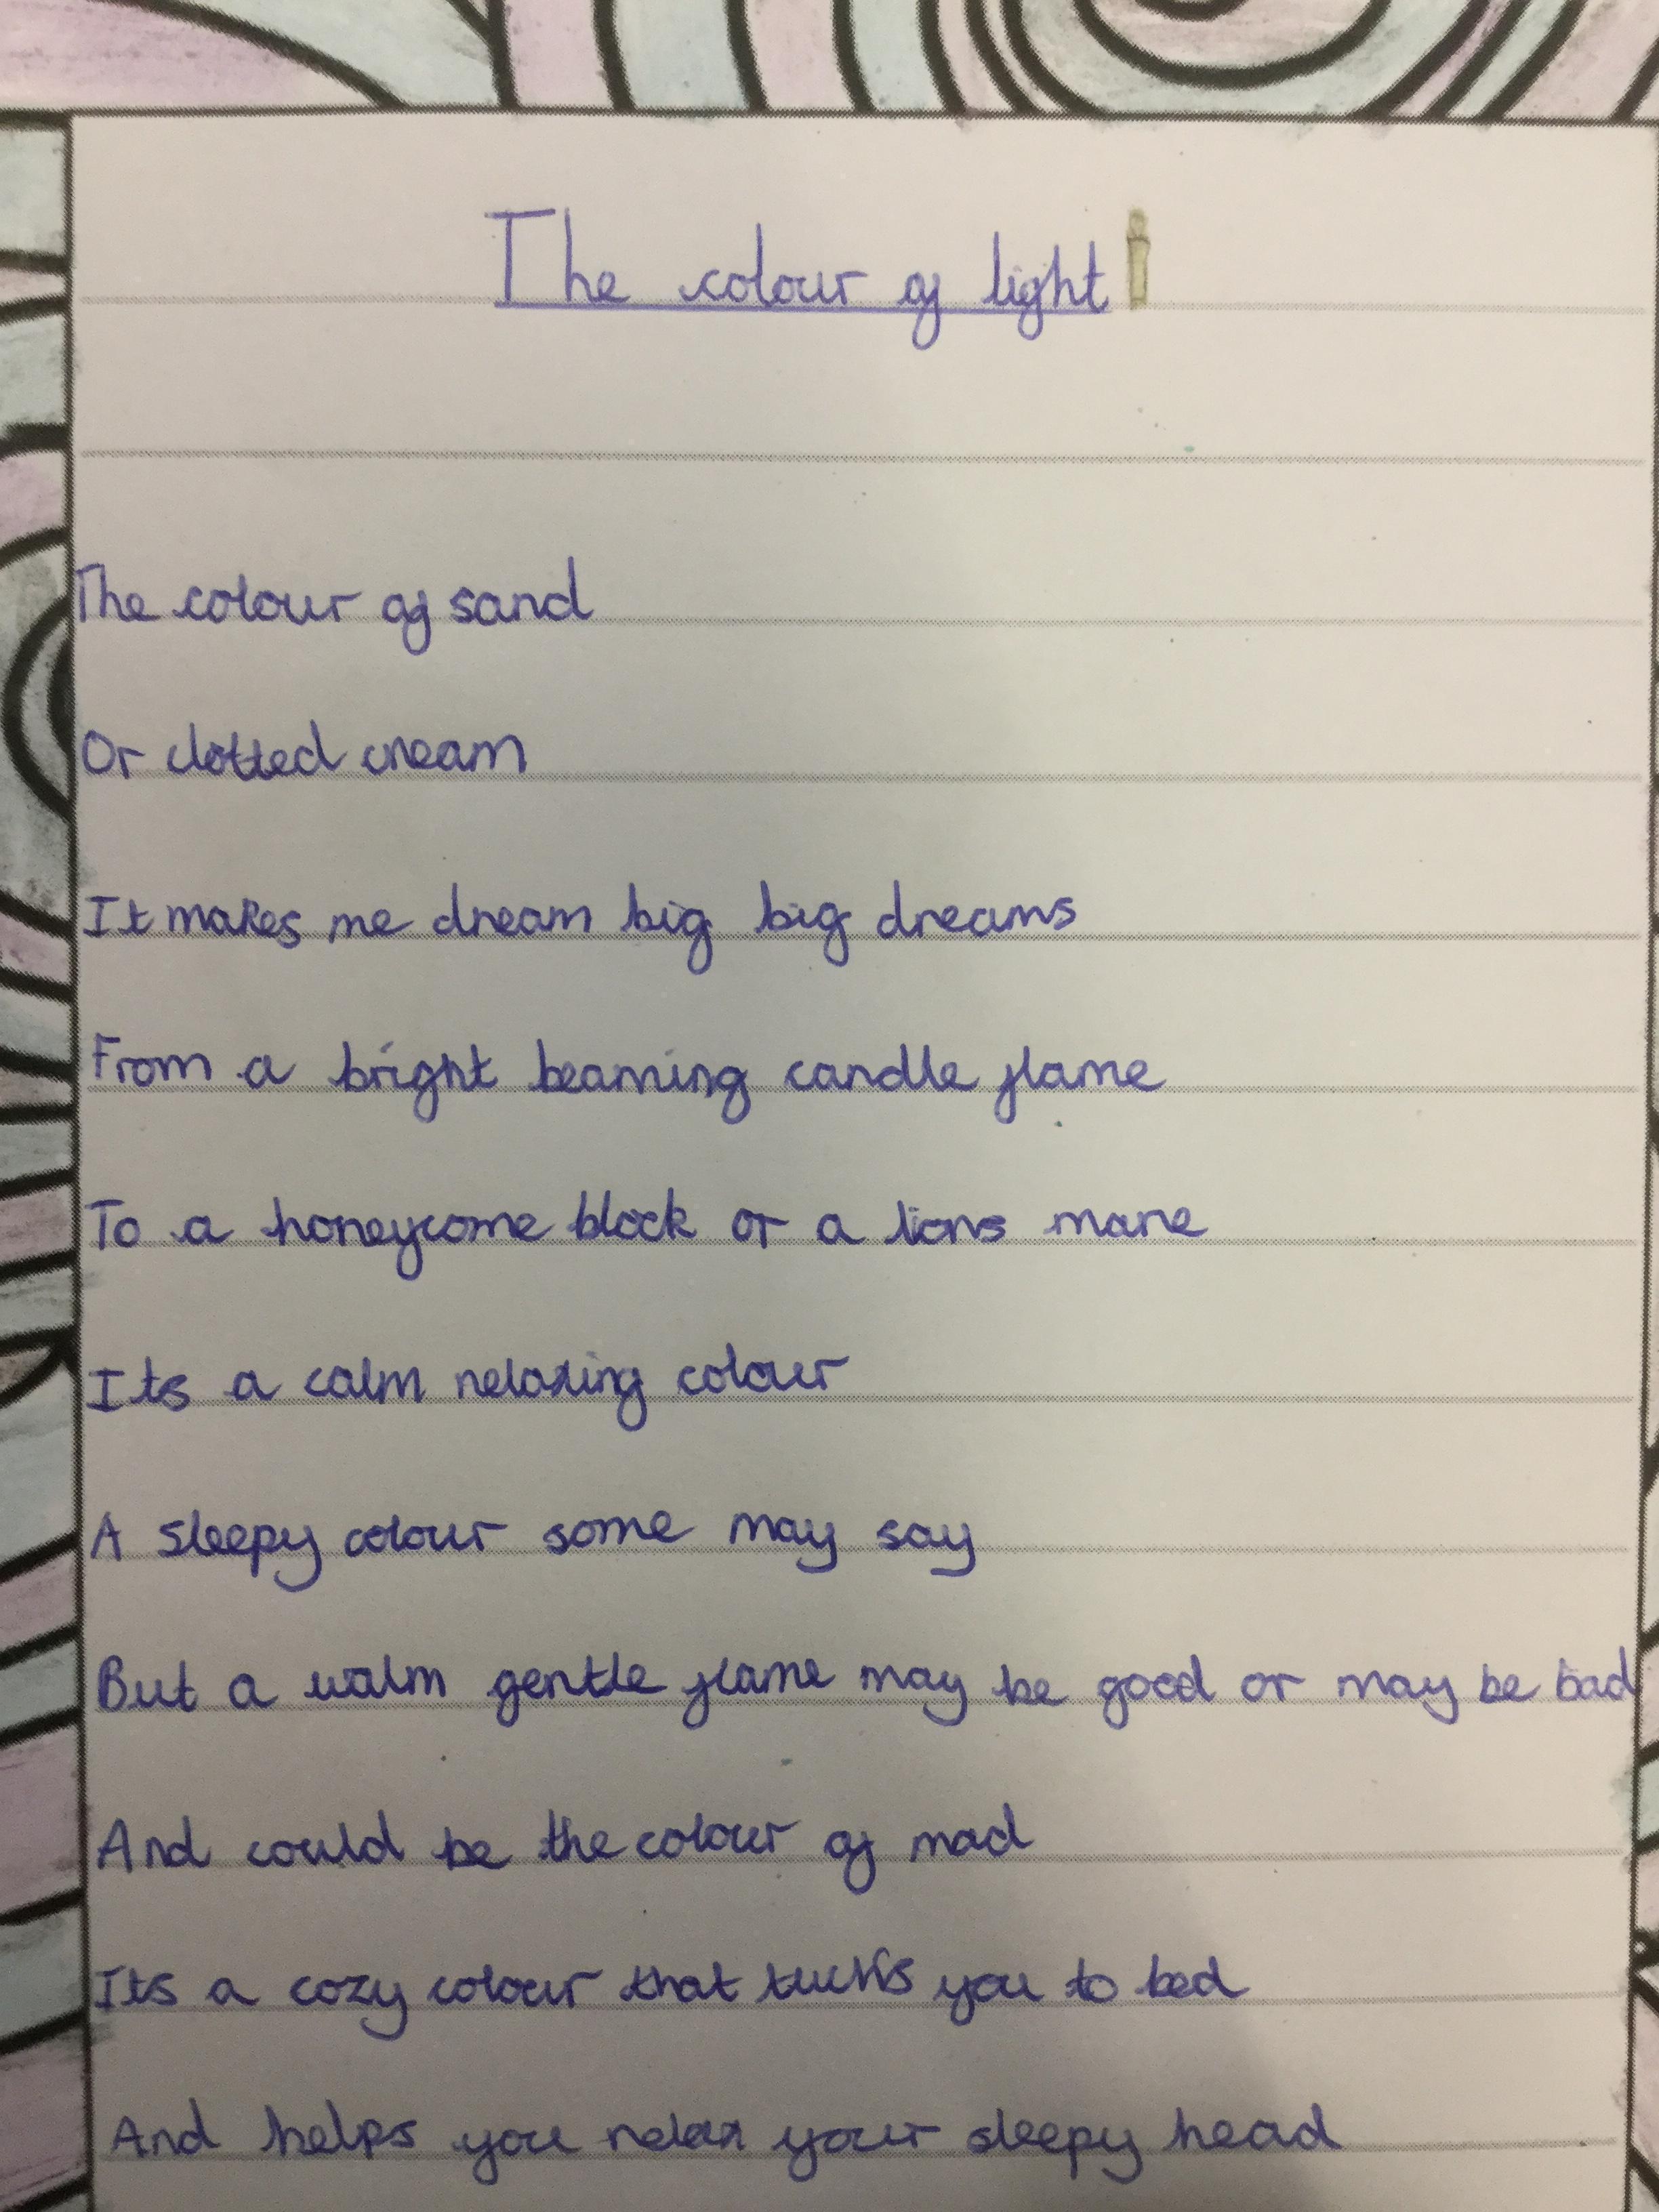 The colour of light
The colour of sand
Or clotted cream
It makes me dream big big dreams
From a bright beaming candle flame
To a honeycome block or a lions mane
Its a calm relaxing colour
A sleepy colour some may say
But a walm gentle flame may be good or may be bad
And could be the colour of mad
Its a cozy colour that tucks you to bed
And helps you relax your sleepy head